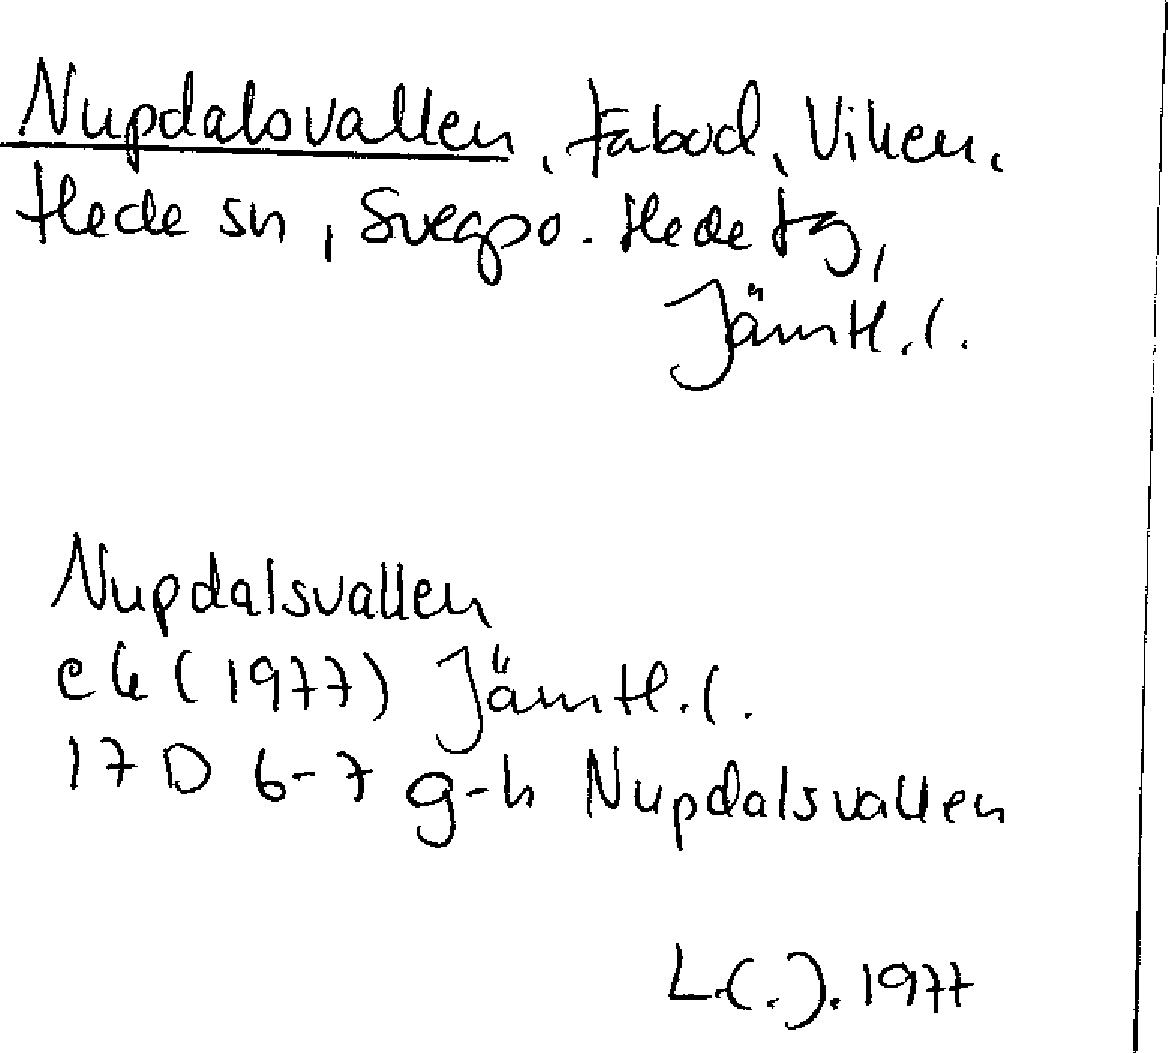 Nupdalsvallen, fäbod, Viken,
Hede sn, Svegpo. Hede tg,
Jämtl.l.
Nupdalsvallen
ek (1977) Jämtl.l.
17 D 6-7 g-h Nupdalsvallen
1977